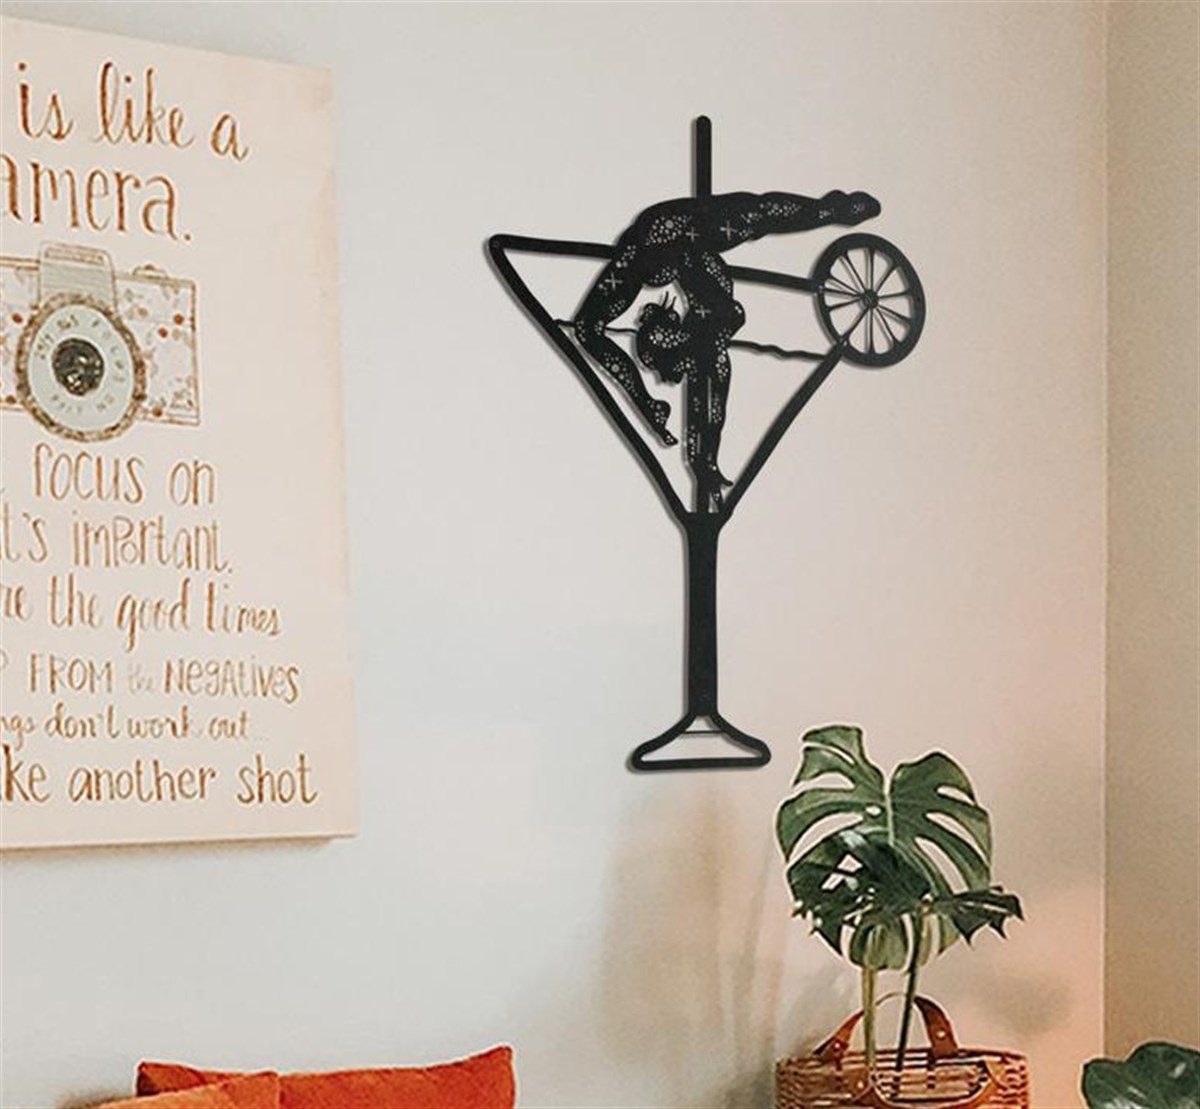 is like a
amera.
focus on
t's important.
re the good times
P FROM the NEGAtiVes
ngs don't work out
ke another shot